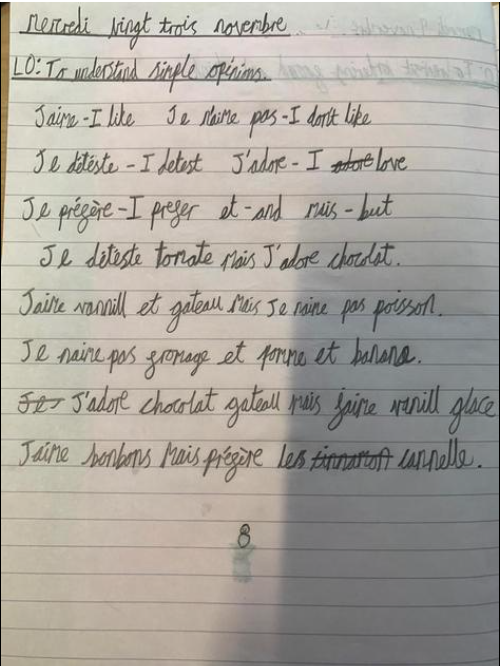 Mercredi vingt trois novembre
LO: To understand simple opinions.
J'aime - I like Je n'aime pas - I don't like
Je détéste - I detest J'adore - I adore love
Je prégère - I preger et - and mais - but
Je déteste tomate mais J'adore chocolat.
J'aime vannill et gateau mais Je naime pas poisson.
Je naime pas gromage et pomme et banana.
Je J'adore chocolat gateau mais jaime vanill glace
J'aime bonbons mais prégère les cinnamon cannelle.
8